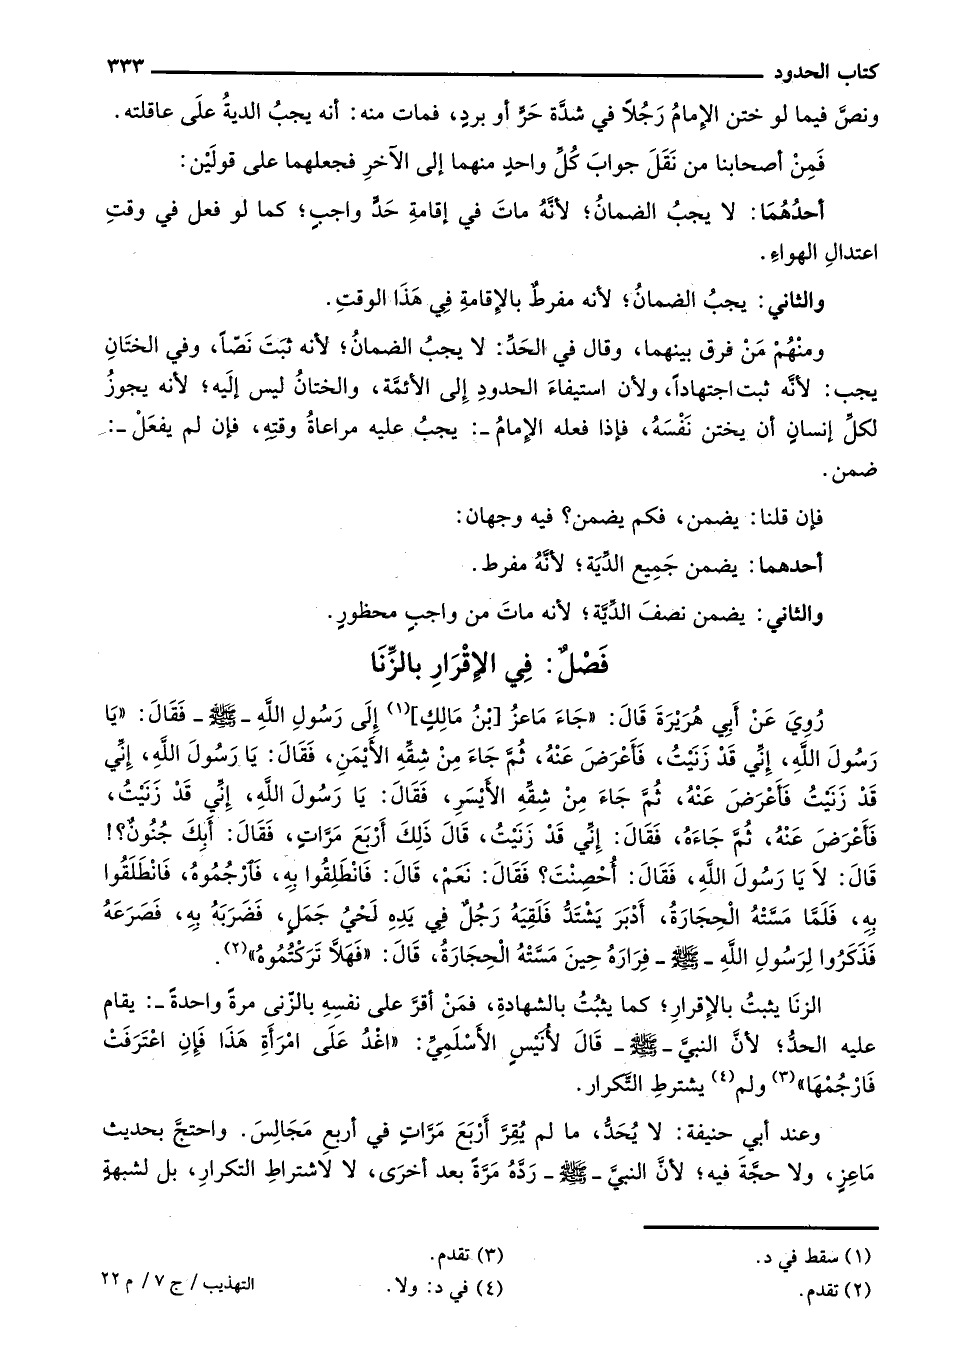 كتاب الحدود ٣٣٣
ونصَّ فيما لو ختن الإمامُ رَجُلاً في شدَّة حَرٍّ أو بردٍ، فمات منه: أنه يجبُ الديةُ علَى عاقلته.
فَمِنْ أصحابنا من نَقَلَ جوابَ كُلِّ واحدٍ منهما إلى الآخرِ فجعلهما على قولَيْن:
أحدُهُمَا: لا يجبُ الضمانُ؛ لأنَّهُ ماتَ في إقامةِ حَدٍّ واجبٍ؛ كما لو فعل في وقتِ
اعتدالِ الهواءِ.
والثاني: يجبُ الضمانُ؛ لأنه مفرطٌ بالإقامةِ فِي هَذَا الوقتِ.
ومنْهُمْ مَنْ فرق بينهما، وقال في الحَدِّ: لا يجبُ الضمانُ؛ لأنه ثبَتَ نَصّاً، وفي الختَانِ
يجب: لأنَّه ثبت اجتهاداً، ولأن استيفاءَ الحدودِ إلى الأئمَّة، والختانُ ليس إلَيه؛ لأنه يجوزُ
لكلِّ إنسانٍ أن يختن نَفْسَهُ، فإذا فعله الإمامُ ـ: يجبُ عليه مراعاةُ وقتِهِ، فإن لم يفعَلْ ـ:
ضمن.
فإن قلنا: يضمن، فكم يضمن؟ فيه وجهان:
أحدهما: يضمن جَمِيع الدِّيَة؛ لأنَّهُ مفرط.
والثاني: يضمن نصفَ الدِّيَّة؛ لأنه ماتَ من واجبٍ محظورٍ.
فَصْلٌ: فِي الإِقْرَارِ بالزِّنَا
رُوِيَ عَنْ أَبِي هُرَيْرَةَ قَالَ: «جَاءَ مَاعزُ [بْنُ مَالِكٍ](١) إلَى رَسُولِ اللَّهِ ـ ﷺ ـ فَقَالَ: «يَا
رَسُولَ اللَّهِ، إنِّي قَدْ زَنَيْتُ، فَأَعْرَضَ عَنْهُ، ثُمَّ جَاءَ مِنْ شِقِّهِ الأَيْمَنِ، فَقَالَ: يَا رَسُولَ اللَّهِ، إنِّي
قَدْ زَنَيْتُ فَأَعْرَضَ عَنْهُ، ثُمَّ جَاءَ مِنْ شِقِّهِ الأَيْسَرِ، فَقَالَ: يَا رَسُولَ اللَّهِ، إنِّي قَدْ زَنَيْتُ،
فَأَعْرَضَ عَنْهُ، ثُمَّ جَاءَهُ، فَقَالَ: إنِّي قَدْ زَنَيْتُ، قَالَ ذَلِكَ أَرْبَعَ مَرَّاتٍ، فَقَالَ: أَبِكَ جُنُونٌ؟!
قَالَ: لاَ يَا رَسُولَ اللَّهِ، فَقَالَ: أُحْصِنْتَ؟ فَقَالَ: نَعَمْ، قَالَ: فَانْطَلِقُوا بِهِ، فَارْجُمُوهُ، فَانْطَلَقُوا
بِهِ، فَلَمَّا مَسَّتْهُ الْحِجَارَةُ، أَدْبَرَ يَشْتَدُّ فَلَقِيَهُ رَجُلٌ فِي يَدِهِ لَحْيُ جَمَلٍ، فَضَرَبَهُ بِهِ، فَصَرَعَهُ
فَذَكَرُوا لِرَسُولِ اللَّهِ ـ ﷺ ـ فِرَارَهُ حِينَ مَسَّتْهُ الْحِجَارَةُ، قَالَ: «فَهَلاَّ تَرَكْتُمُوهُ»(٢).
الزنَا يثبتُ بالإقرارِ؛ كما يثبُتُ بالشهادةِ، فمَنْ أقرَّ على نفسِهِ بالزّنى مرةً واحدةً ـ: يقام
عليه الحدُّ؛ لأنَّ النبيَّ ـ ﷺ ـ قَالَ لأُنَيْسٍ الأَسْلَمِيِّ: «اغْدُ عَلَى امْرَأَةِ هَذَا فَإنِ اعْتَرَفَتْ
فَارْجُمْهَا»(٣) ولم(٤) يشترطِ التَّكرار.
وعند أبي حنيفة: لا يُحَدُّ، ما لم يُقِرَّ أَرْبَعَ مَرَّاتٍ في أربعِ مَجَالِسَ. واحتجَّ بحديث
مَاعِزٍ، ولا حجَّةَ فيه؛ لأنَّ النبيَّ ـ ﷺ ـ رَدَّهُ مَرَّةً بعد أخرَى، لا لاشتراطِ التكرارِ، بل لشبهةٍ
(١) سقط في د.
(٢) تقدم.
(٣) تقدم.
(٤) في د: ولا.
التهذيب / ج ٧ / م ٢٢